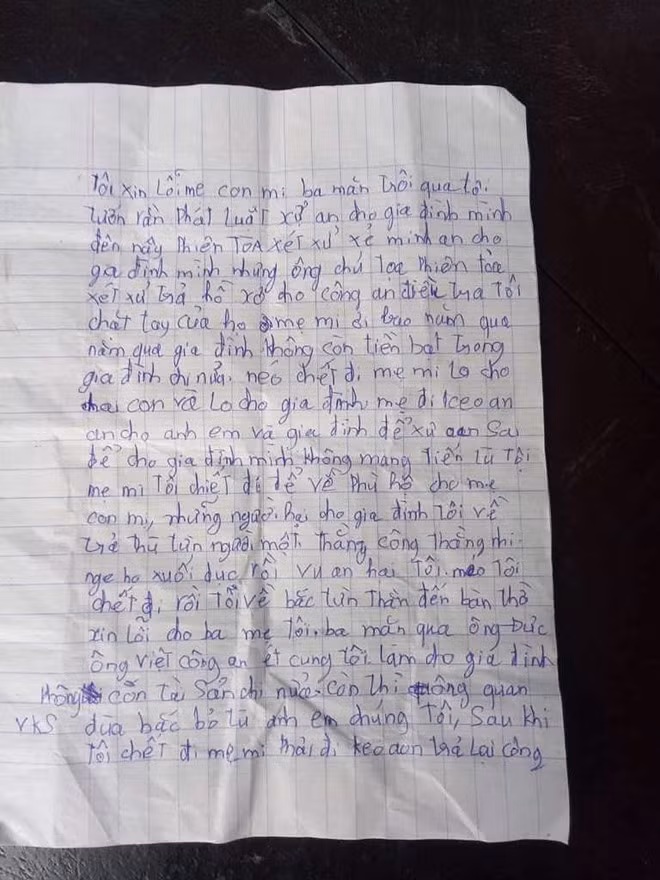 Tôi xin Lỗi mẹ con mi ba mãn trôi qua tôi.
luôn rằn Phát Luật xử an cho gia đình mình
đến nầy Phiên TOA XÉT XỬ xẻ minh an cho
gia đình mình nhưng ông chủ Toạ Phiên tòa
xét xử trả hồ xơ cho công an điều tra Tôi
chất tay của họ mẹ mi ơi bao năm qua
năm qua gia đình không con tiền bạt trong
gia đình chi nửa. neó chết đi mẹ mi lo cho
hai con và Lo cho gia đình mẹ đi keo an
an cho anh em và gia đình để xử oan Sai
để cho gia đình mình không mang Tiến tù Tội
mẹ mi Tôi chiết đi để về Phù hộ cho mẹ
con mi, những người hại cho gia đình tôi về
trả thù từn người một. thằng công Thằng nhi
nge họ xuối dục rồi vu an hai Tôi. méo Tôi
chết đi rồi Tôi về bắc từn Thần đến bàn thờ
xin lỗi cho ba mẹ Tôi. ba mãn qua ông Đức
ông việt công an ét cung tôi làm do gia đình
không còn tà Sản chi nửa. còn thì quan
VKS dùa bắc bỏ tù anh em chúng Tôi, Sau khi
Tôi chết đi mẹ mi Phải đi keo oan trả Lại công